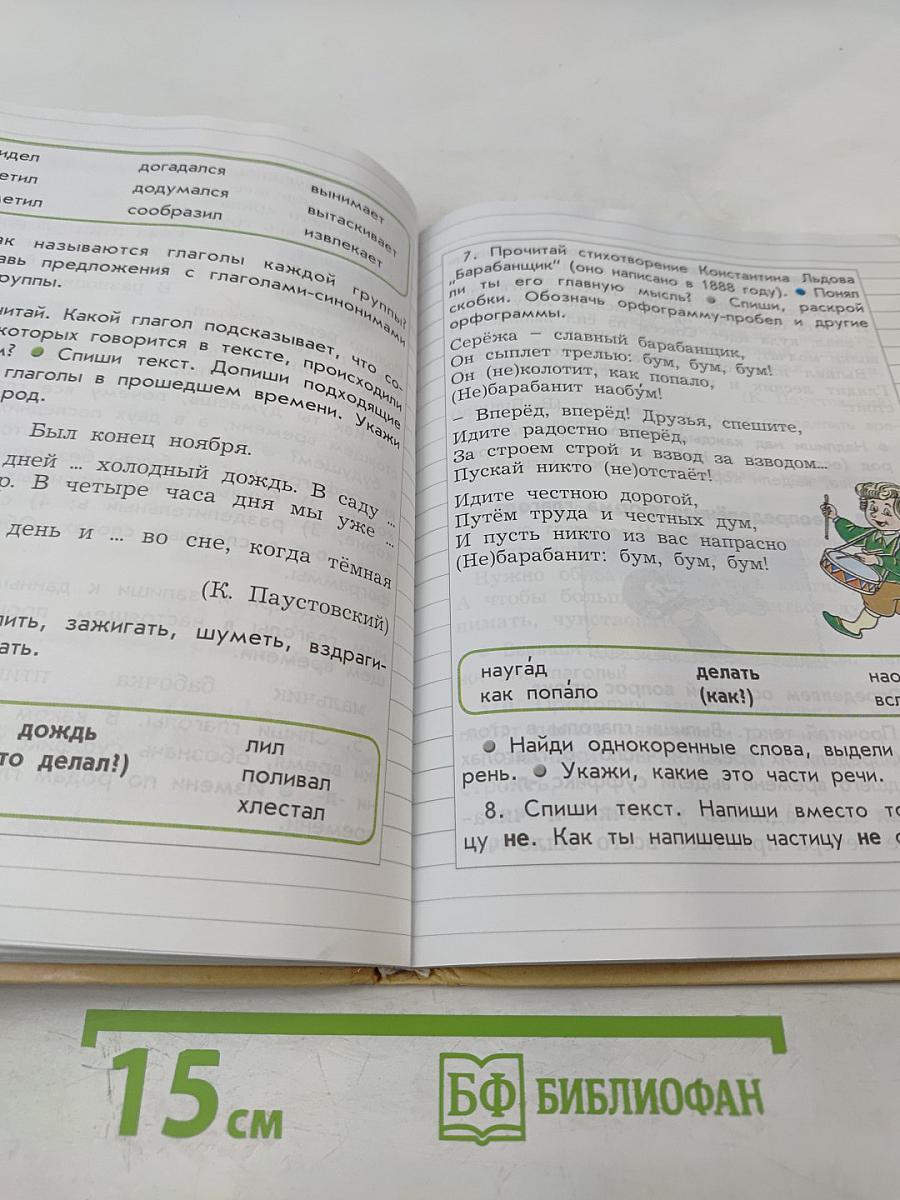 догадался
вынимает
додумался
вытаскивает
сообразил
извлекает
называются глаголы каждой группы?
предложения с глаголами-синонимами
группы.
Какой глагол подсказывает, что со-
которых говорится в тексте, происходили
Спиши текст. Допиши подходящие
глаголы в прошедшем времени. Укажи
род.
Был конец ноября.
дней ... холодный дождь. В саду ...
В четыре часа дня мы уже ...
день и ... во сне, когда тёмная
(К. Паустовский)
зажигать, шуметь, вздраги-
дождь
делал?)
лил
поливал
хлестал
7. Прочитай стихотворение Константина Льдова
„Барабанщик“ (оно написано в 1888 году). • Понял
ли ты его главную мысль? • Спиши, раскрой
скобки. Обозначь орфограмму-пробел и другие
орфограммы.
Серёжа – славный барабанщик,
Он сыплет трелью: бум, бум, бум!
Он (не)колотит, как попало,
(Не)барабанит наобу́м!
– Вперёд, вперёд! Друзья, спешите,
Идите радостно вперёд,
За строем строй и взвод за взводом...
Пускай никто (не)отстаёт!
Идите честною дорогой,
Путём труда и честных дум,
И пусть никто из вас напрасно
(Не)барабанит: бум, бум, бум!
науга́д
как попа́ло
делать
(как?)
• Найди однокоренные слова, выдели
рень. • Укажи, какие это части речи.
8. Спиши текст. Напиши вместо
цу не. Как ты напишешь частицу не
15 см
БФ БИБЛИОФАН